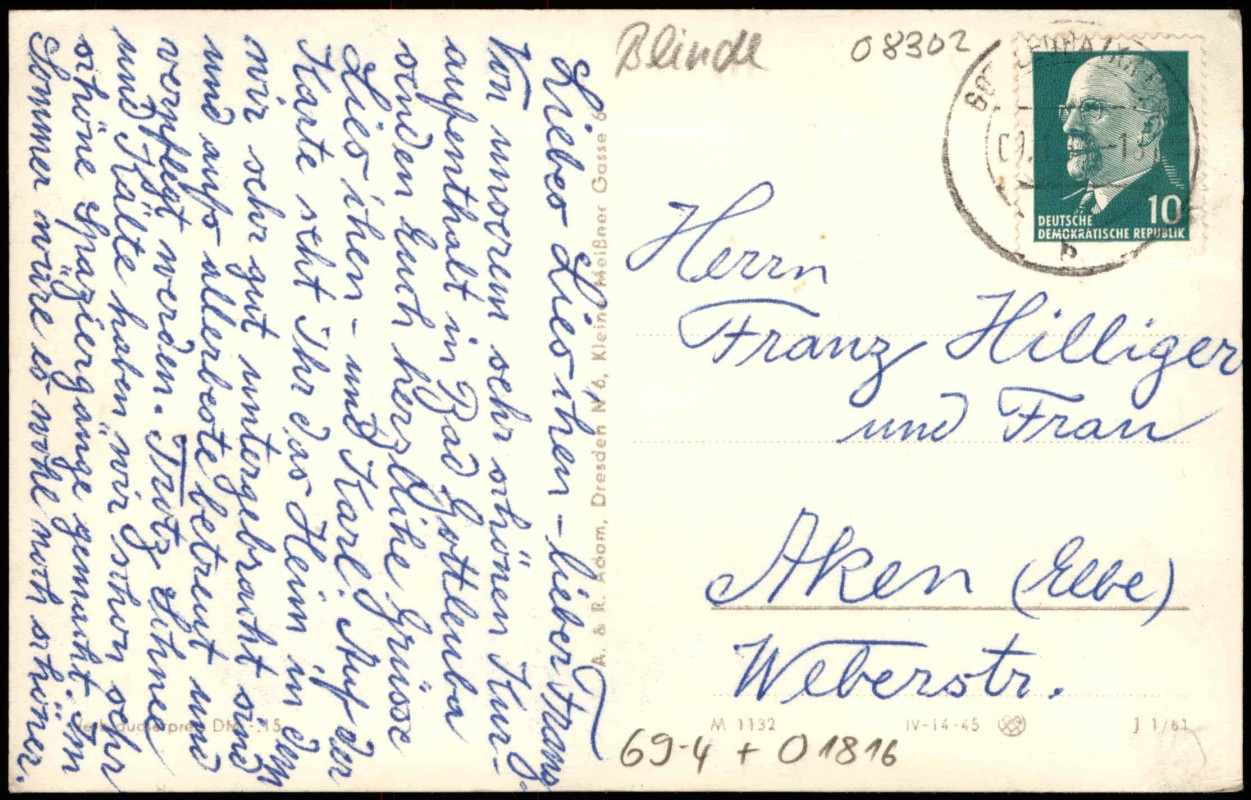 Liebes Lieschen - lieber Franz
Von unserem sehr schönen Kur-
aufenthalt in Bad Gottleuba
senden Euch herzliche Grüsse
Lieschen - und Karl. Auf der
Karte seht Ihr das Heim in dem
wir sehr gut untergebracht sind
und aufs allerbeste betreut und
verpflegt werden. Trotz Schnee
und Kälte haben wir schon sehr
schöne Spaziergänge gemacht im
Sommer wäre es wohl noch schöner.
Verbraucherpreis DM -.15
A. & R. Adam, Dresden N 6, Kleine Meißner Gasse 6
Blinde
08302
10
DEUTSCHE
DEMOKRATISCHE REPUBLIK
b
Herrn
Franz Hilliger
und Frau
Aken (Elbe)
Weberstr.
M 1132
IV-14-45
J 1/61
69-4 + 01816